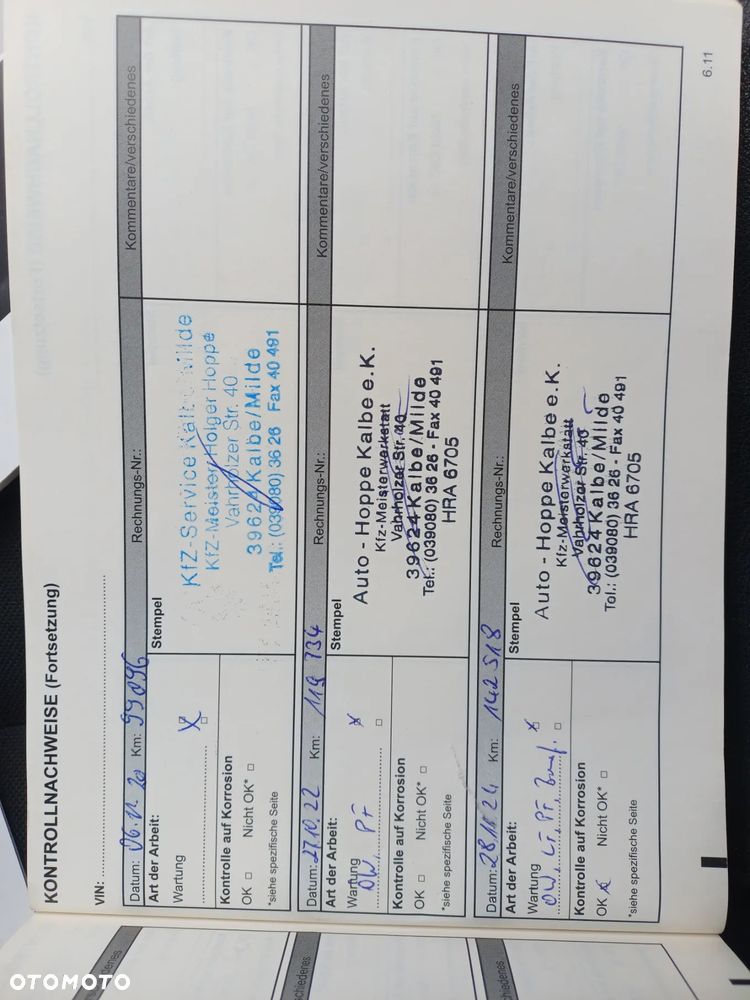 KONTROLLNACHWEISE (Fortsetzung)
VIN:
Datum: 06.12.20 Km: 99096 Rechnungs-Nr.: Kommentare/verschiedenes
Art der Arbeit:
Stempel
Wartung
Kontrolle auf Korrosion
OK □ Nicht OK* □
*siehe spezifische Seite
KfZ-Service Kalbe/Milde
KfZ-Meister Holger Hoppe
Vahrholzer Str. 40
39624 Kalbe/Milde
Tel.: (039080) 36 26 Fax 40 491
Datum: 27.10.22 Km: 119 734 Rechnungs-Nr.: Kommentare/verschiedenes
Art der Arbeit:
Stempel
Wartung
ÖW, PF
Kontrolle auf Korrosion
OK □ Nicht OK* □
*siehe spezifische Seite
Auto - Hoppe Kalbe e.K.
Kfz-Meisterwerkstatt
Vahrholzer Str. 40
39624 Kalbe/Milde
Tel.: (039080) 36 26 - Fax 40 491
HRA 6705
Datum: Km: 142 518 Rechnungs-Nr.: Kommentare/verschiedenes
Art der Arbeit:
Stempel
Wartung
ÖW, LF, PF
Kontrolle auf Korrosion
OK Nicht OK* □
*siehe spezifische Seite
Auto - Hoppe Kalbe e.K.
Kfz-Meisterwerkstatt
Vahrholzer Str. 40
39624 Kalbe/Milde
Tel.: (039080) 36 26 - Fax 40 491
HRA 6705
6.11
schiedenes
OTOMOTO